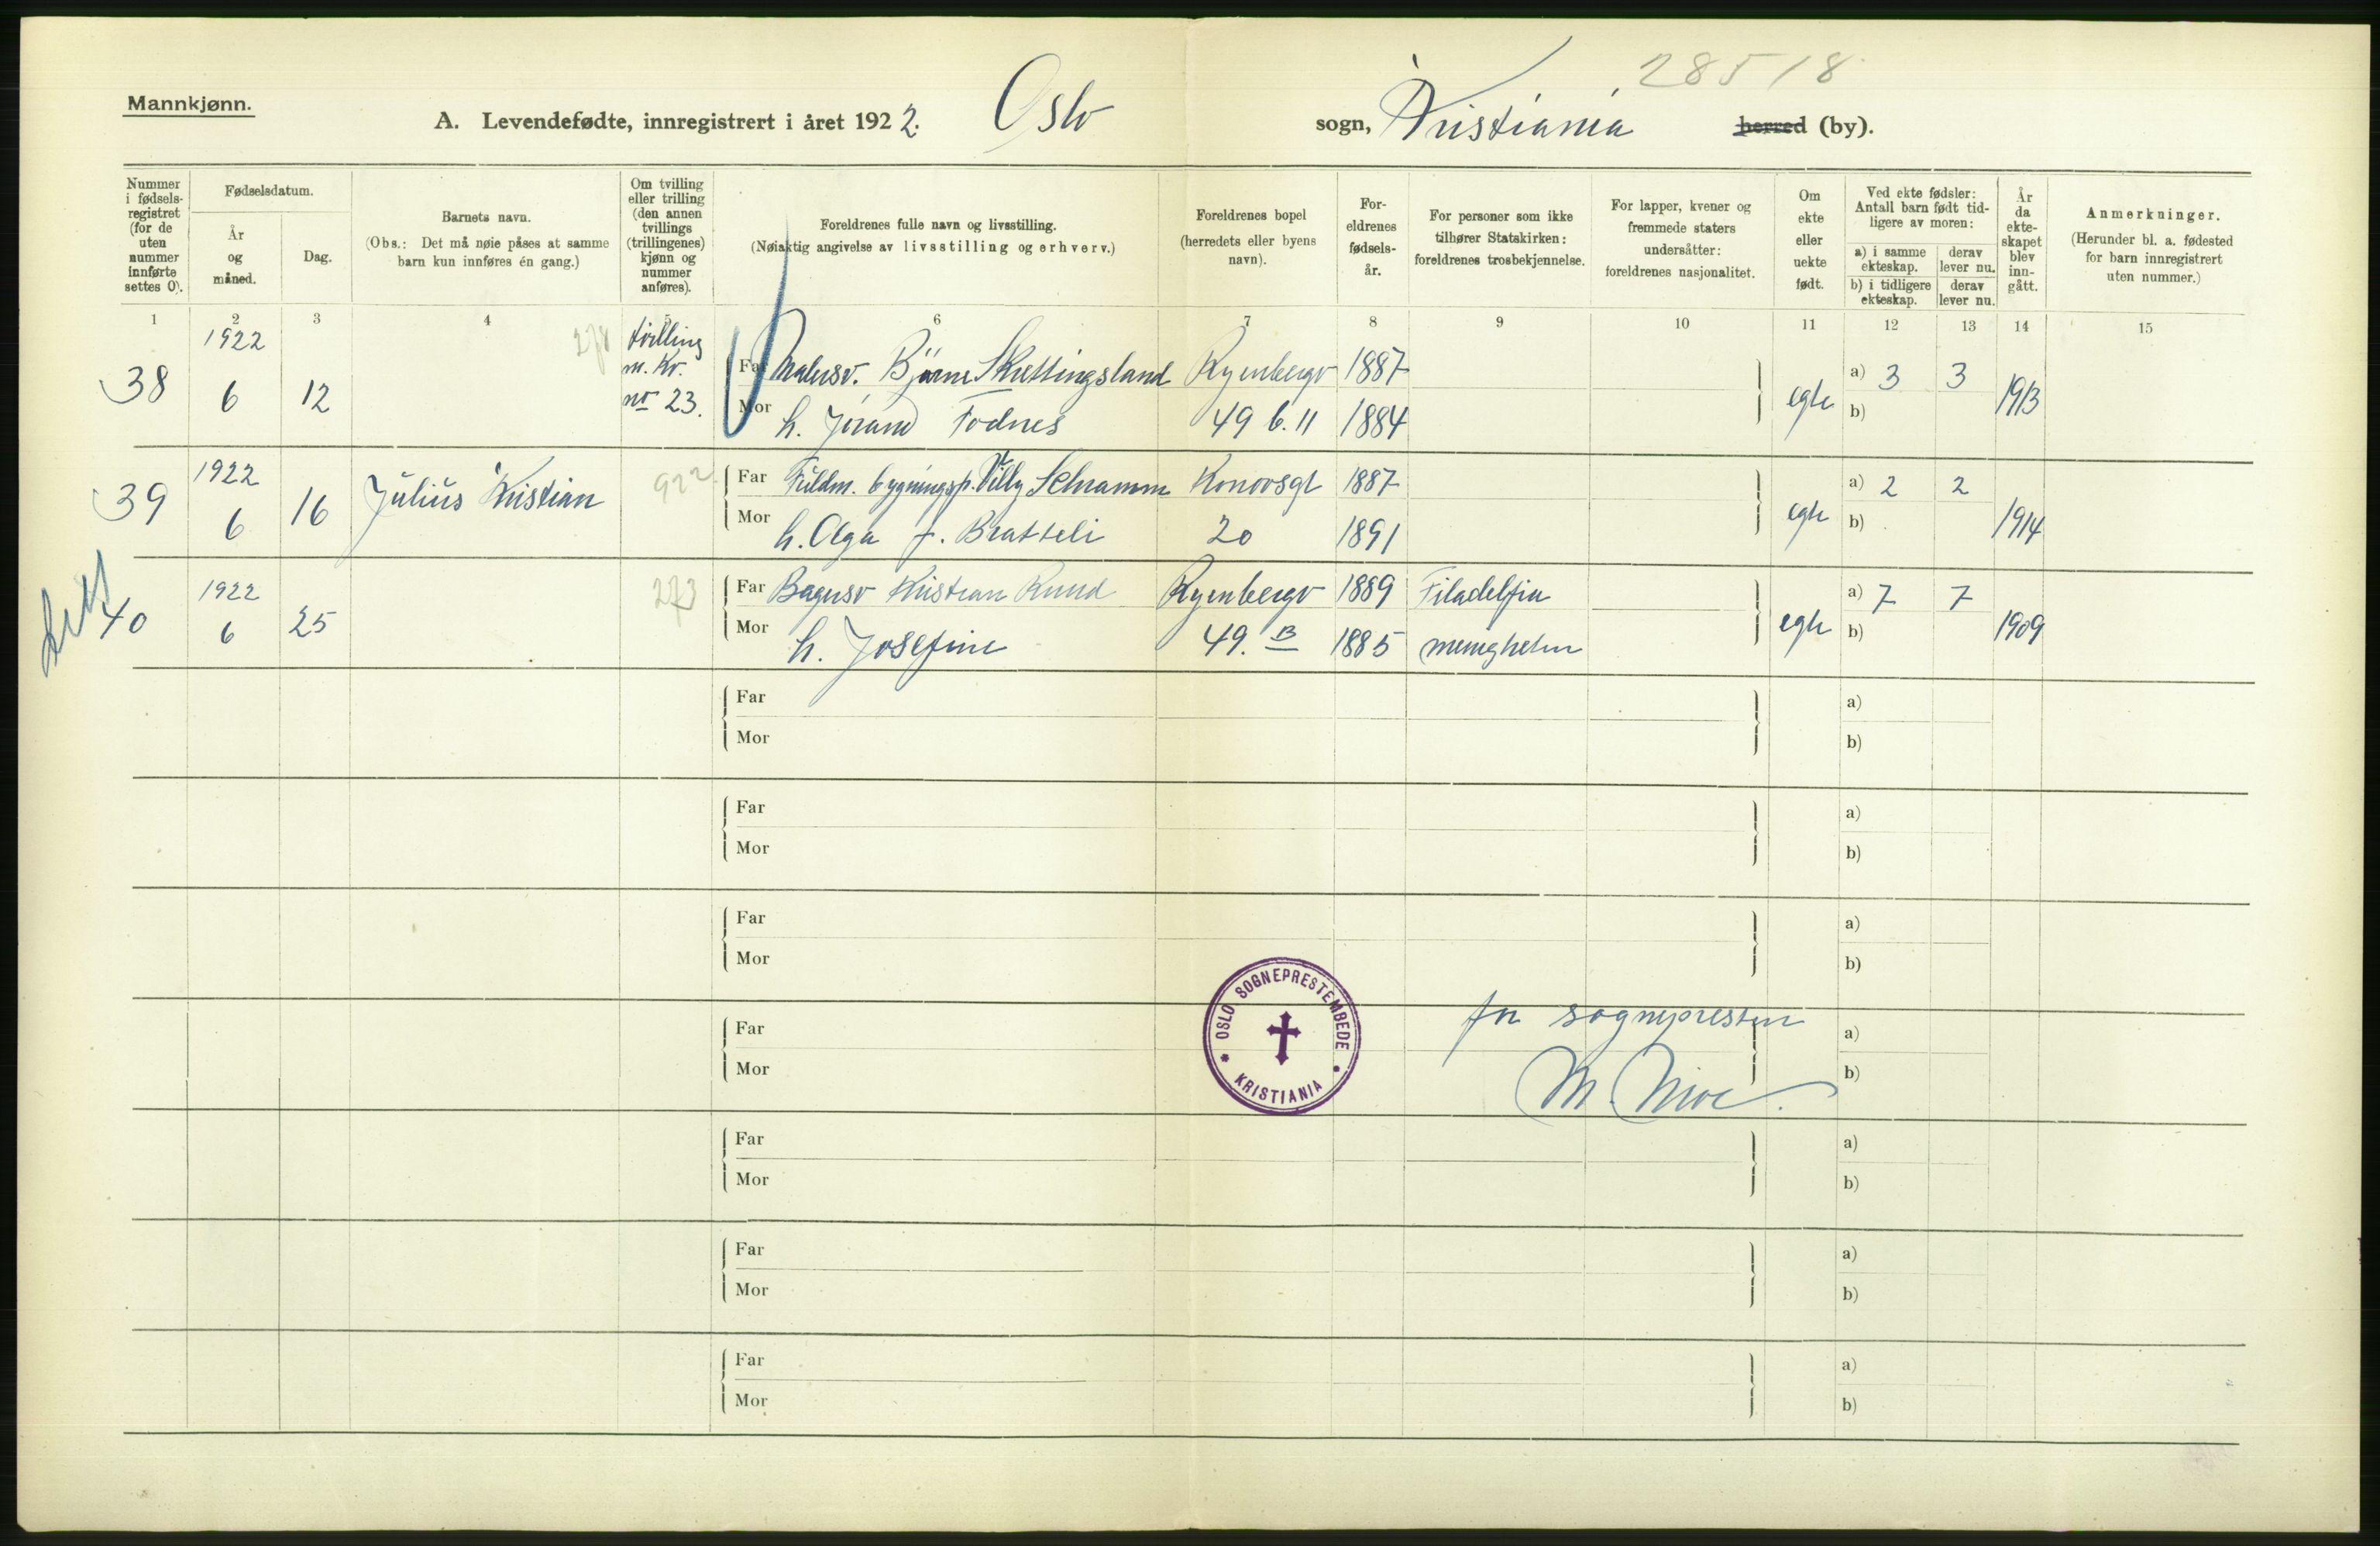 28518
Mannkjønn.
A. Levendefødte, innregistrert i året 1922. Oslo sogn, Kristiania herred (by).
Nummer i fødsels-registret (for de uten nummer innførte settes 0).
Fødselsdatum.
År og måned.
Dag.
Barnets navn.
(Obs.: Det må nøie påses at samme barn kun innføres én gang.)
Om tvilling eller trilling (den annen tvillings (trillingenes) kjønn og nummer anføres).
Foreldrenes fulle navn og livsstilling.
(Nøiaktig angivelse av livsstilling og erhverv.)
Foreldrenes bopel (herredets eller byens navn).
For-eldrenes fødsels-år.
For personer som ikke tilhører Statskirken: foreldrenes trosbekjennelse.
For lapper, kvener og fremmede staters undersåtter: foreldrenes nasjonalitet.
Om ekte eller uekte født.
Ved ekte fødsler: Antall barn født tid-ligere av moren:
a) i samme ekteskap.
derav lever nu.
b) i tidligere ekteskap.
derav lever nu.
År da ekte-skapet blev inn-gått.
Anmerkninger.
(Herunder bl. a. fødested for barn innregistrert uten nummer.)
1 2 3 4 5 6 7 8 9 10 11 12 13 14 15
38 1922 6 12 tvilling m. Kv. no 23.
Far Malersv. Bjarne Skrettingsland Ryenbergv 1887
Mor h. Jorand Fodnes 49 b. 11 1884
egte a) 3 3 b) 1913
39 1922 6 16 Julius Kristian 922
Far Fuldm. bygningsp. Villy Schramm Konovsgt 1887
Mor h. Olga f. Bratteli 20 1891
egte a) 2 2 b) 1914
40 1922 6 25 273
Far Bagersv Kristian Ruud Ryenbergv 1889 Filadelfia
Mor h. Josefine 49. B 1885 menigheten
egte a) 7 7 b) 1909
Far a)
Mor b)
Far a)
Mor b)
Far a)
Mor b)
OSLO SOGNEPRESTEMBEDE
KRISTIANIA
for sognepresten
Far a)
M. Moe.
Mor b)
Far a)
Mor b)
Far a)
Mor b)
Far a)
Mor b)